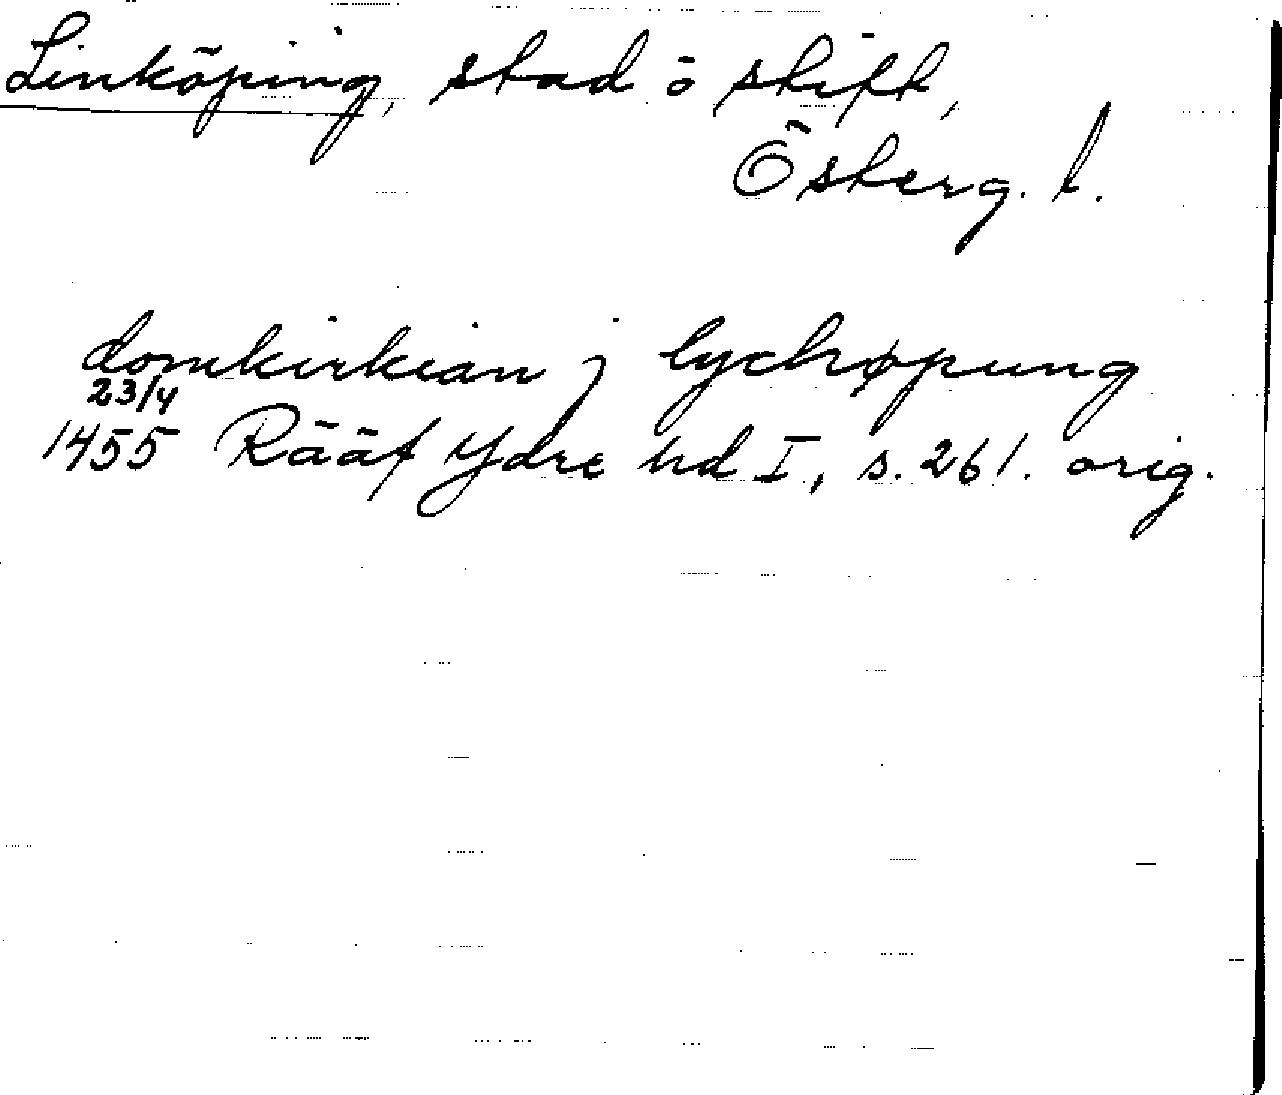 Linköping, stad o stift,
Österg. l.
domkirkian j lychøpung
23/4
1455 Rääf Ydre hd I, s. 261. orig.